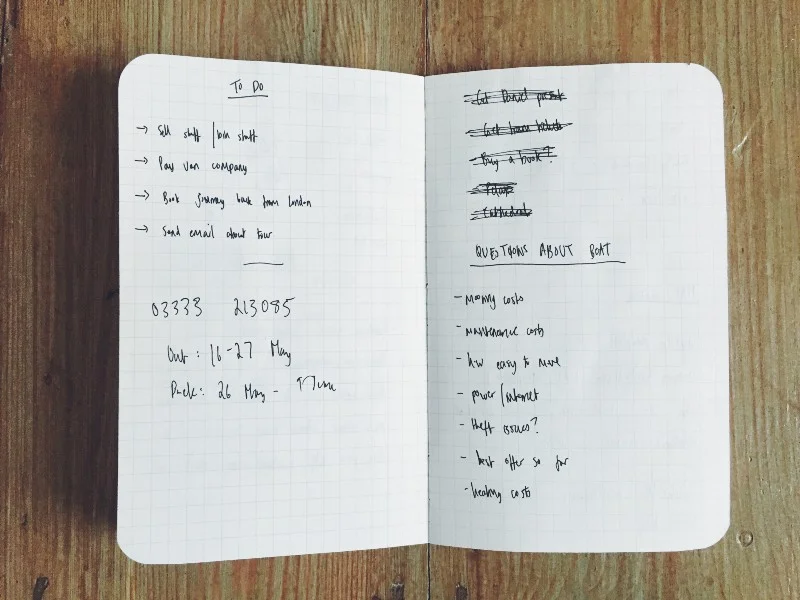 TO DO
→ Sell stuff / bin stuff
→ Pay van company
→ Book journey back from London
→ Send email about tour
03333 213085
Out: 16-27 May
Back: 26 May - 9 June
Get Daniel present
Get
Buy a book?
Cathedral
QUESTIONS ABOUT BOAT
- mooring costs
- maintenance costs
- how easy to move
- power/internet
- theft issues?
- best offer so far
- heating costs